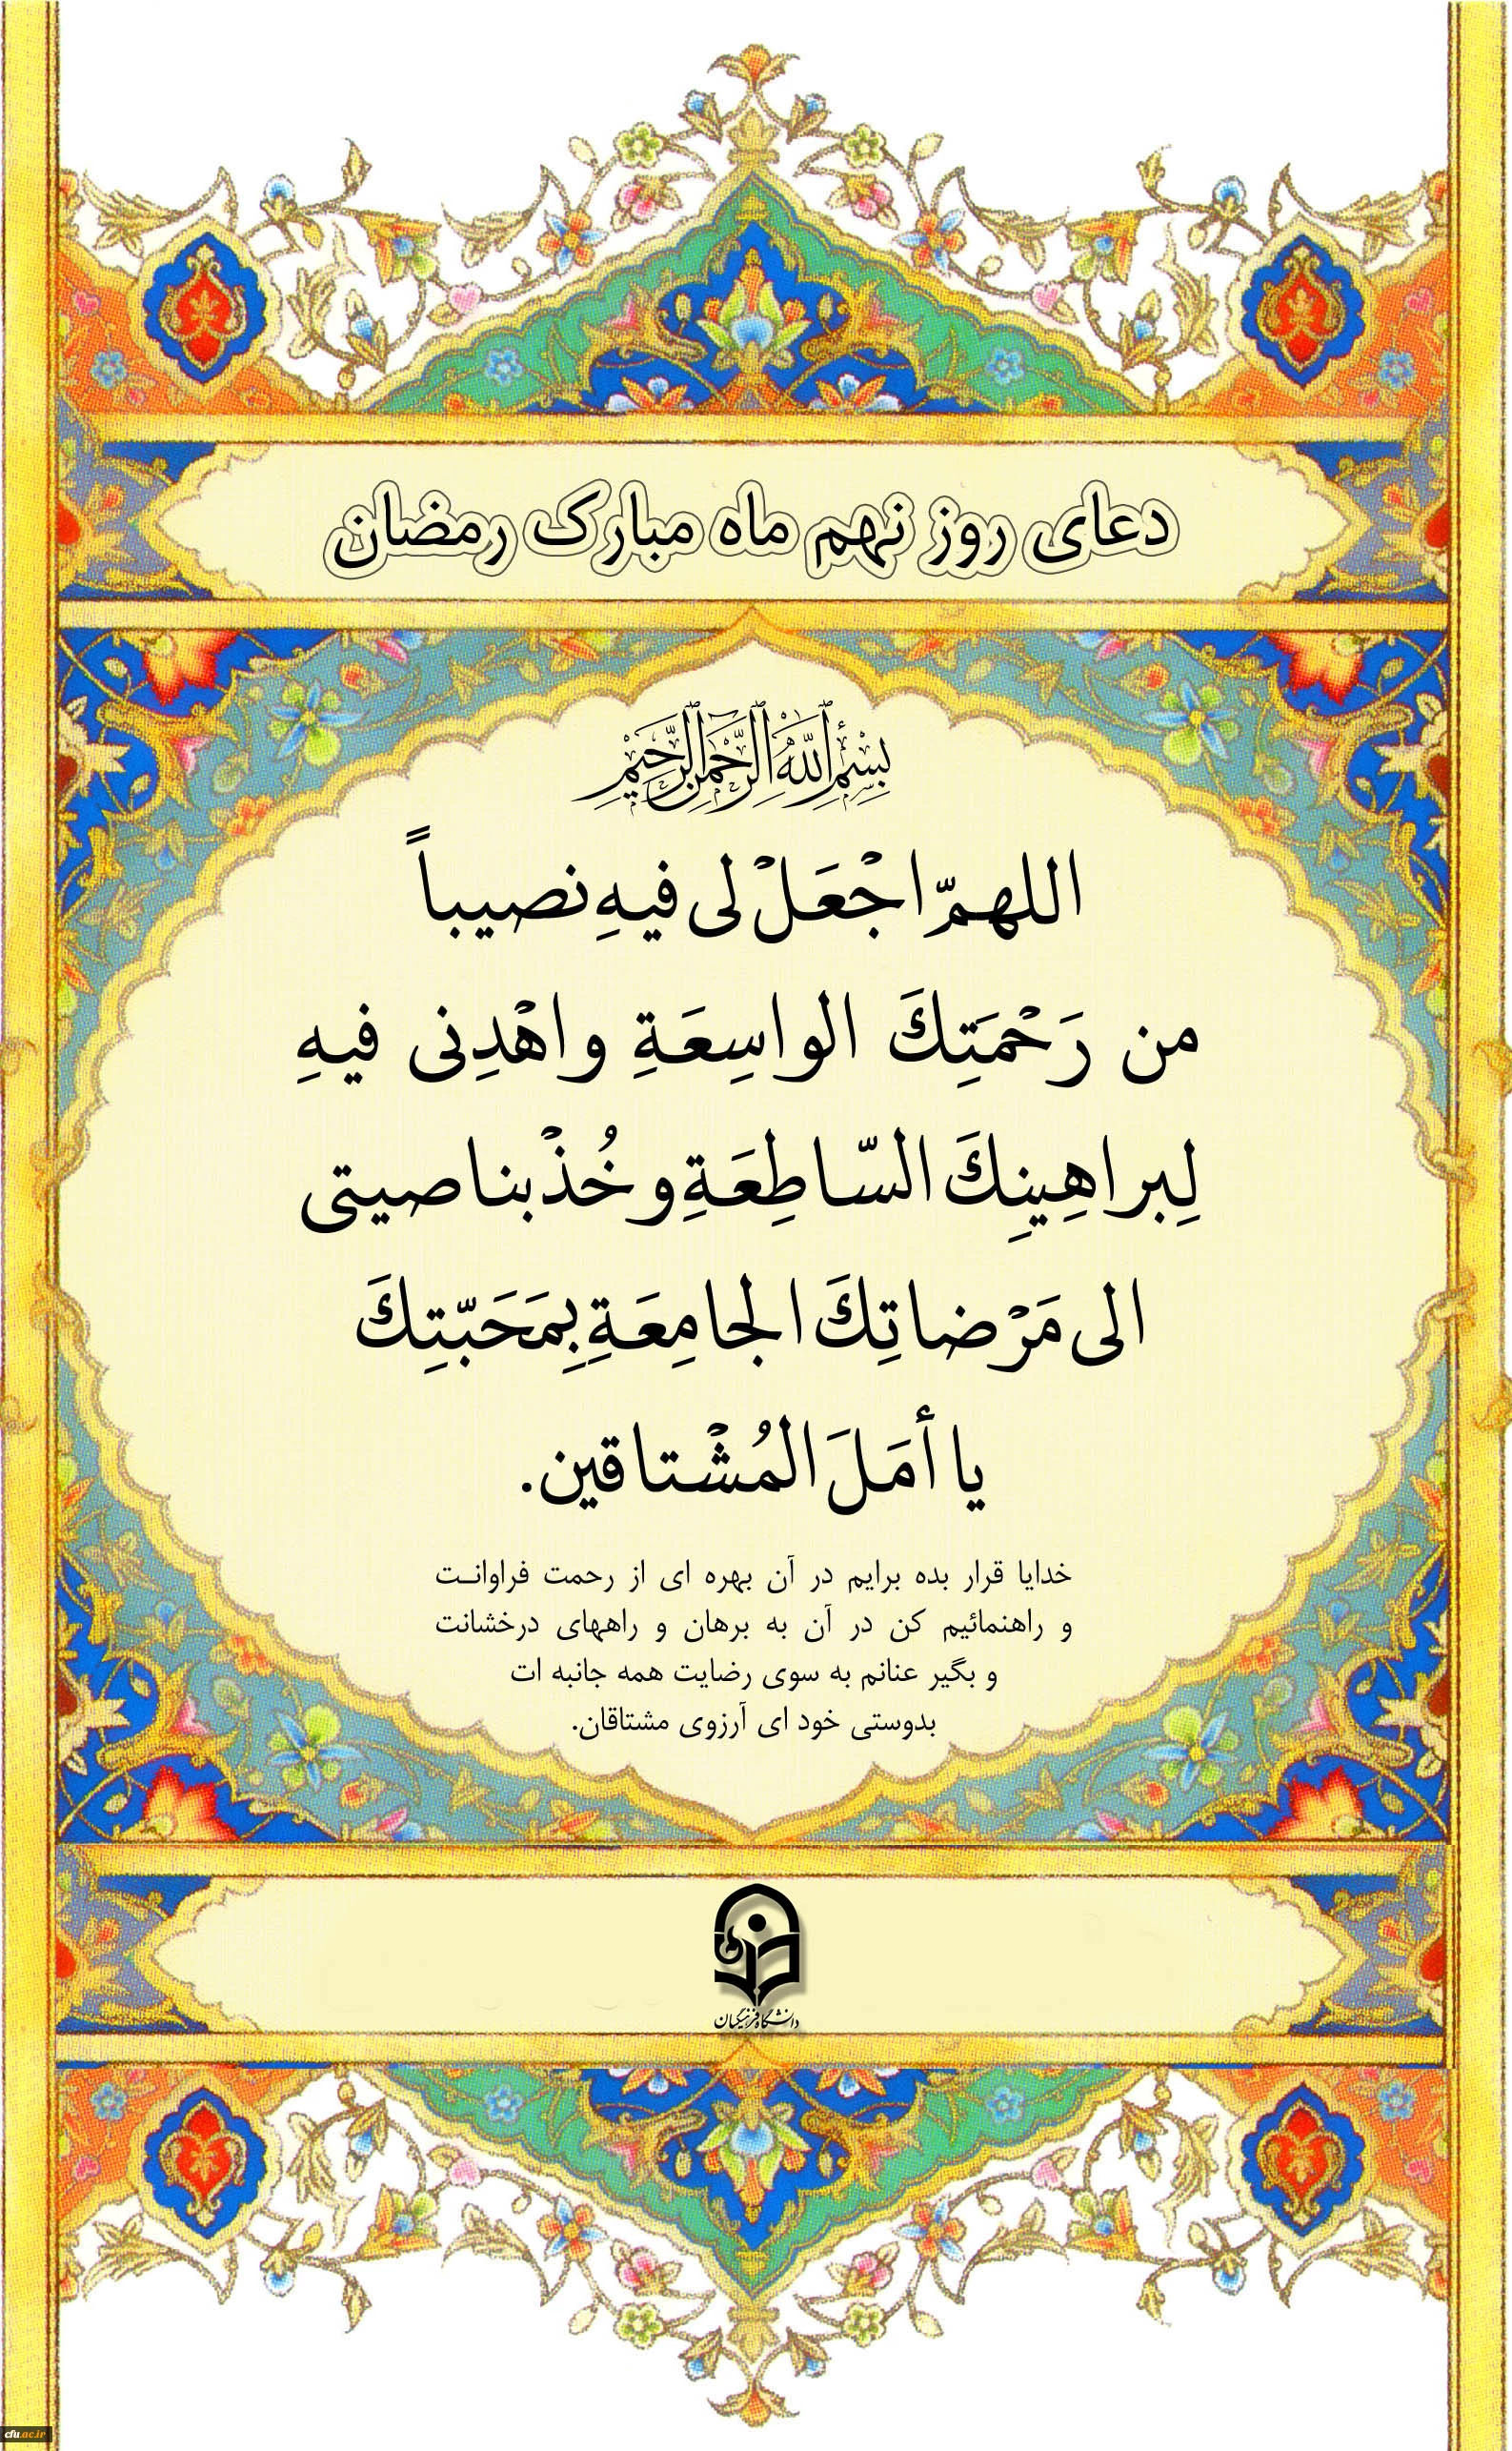 دعای روز نهم ماه مبارک رمضان
بِسْمِ ٱللَّهِ ٱلرَّحْمَٰنِ ٱلرَّحِيمِ
اللهمّ اجْعَلْ لی فیهِ نصیباً
من رَحْمَتِكَ الواسِعَةِ واهْدِنی فیهِ
لِبراهِینِكَ السّاطِعَةِ و خُذْ بناصیتی
الی مَرْضاتِكَ الجامِعَةِ بِمَحَبّتِكَ
یا أمَلَ المُشْتاقین.
خدایا قرار بده برایم در آن بهره ای از رحمت فراوانت
و راهنمائیم کن در آن به برهان و راههای درخشانت
و بگیر عنانم به سوی رضایت همه جانبه ات
بدوستی خود ای آرزوی مشتاقان.
دانشگاه فرهنگیان
cfu.ac.ir